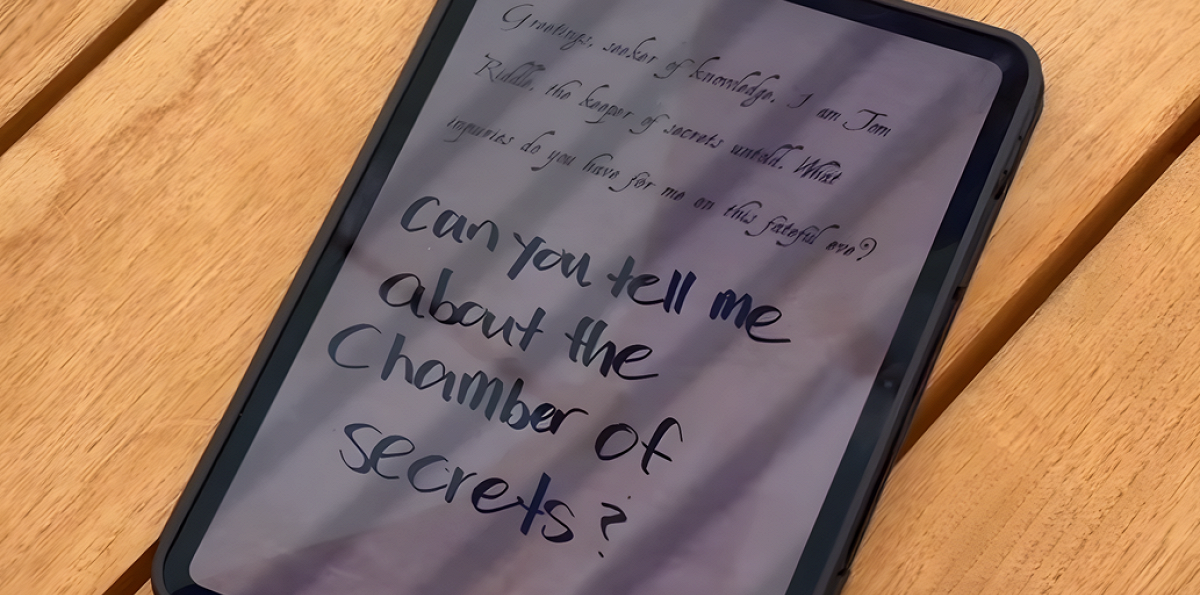 Greetings, seeker of knowledge. I am Tom
Riddle, the keeper of secrets untold. What
inquiries do you have for me on this fateful eve?
Can you tell me
about the
Chamber of
secrets?